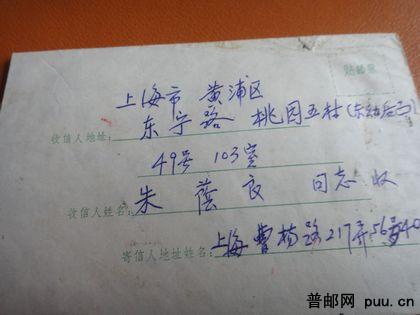 贴邮票
上海市 黄浦区
收信人地址: 东宁路 桃园五村(东站后
49号 103室
收信人姓名: 朱 荫 良 同志 收
寄信人地址姓名: 上海曹杨路217弄56号40
普邮网 puu.cn